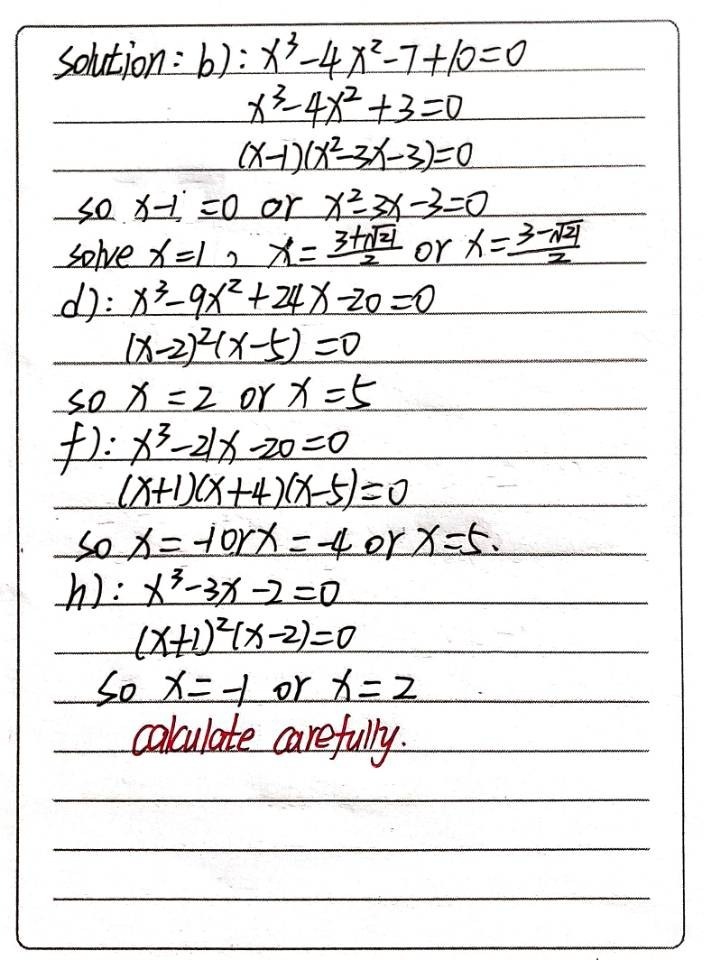 solution: b): x³-4x²-7+10=0
x³-4x²+3=0
(x-1)(x²-3x-3)=0
so x-1=0 or x²-3x-3=0
solve x=1, x=(3+√21)/2 or x=(3-√21)/2
d): x³-9x²+24x-20=0
(x-2)²(x-5)=0
so x=2 or x=5
f): x³-21x-20=0
(x+1)(x+4)(x-5)=0
so x=-1 or x=-4 or x=5.
h): x³-3x-2=0
(x+1)²(x-2)=0
so x=-1 or x=2
calculate carefully.